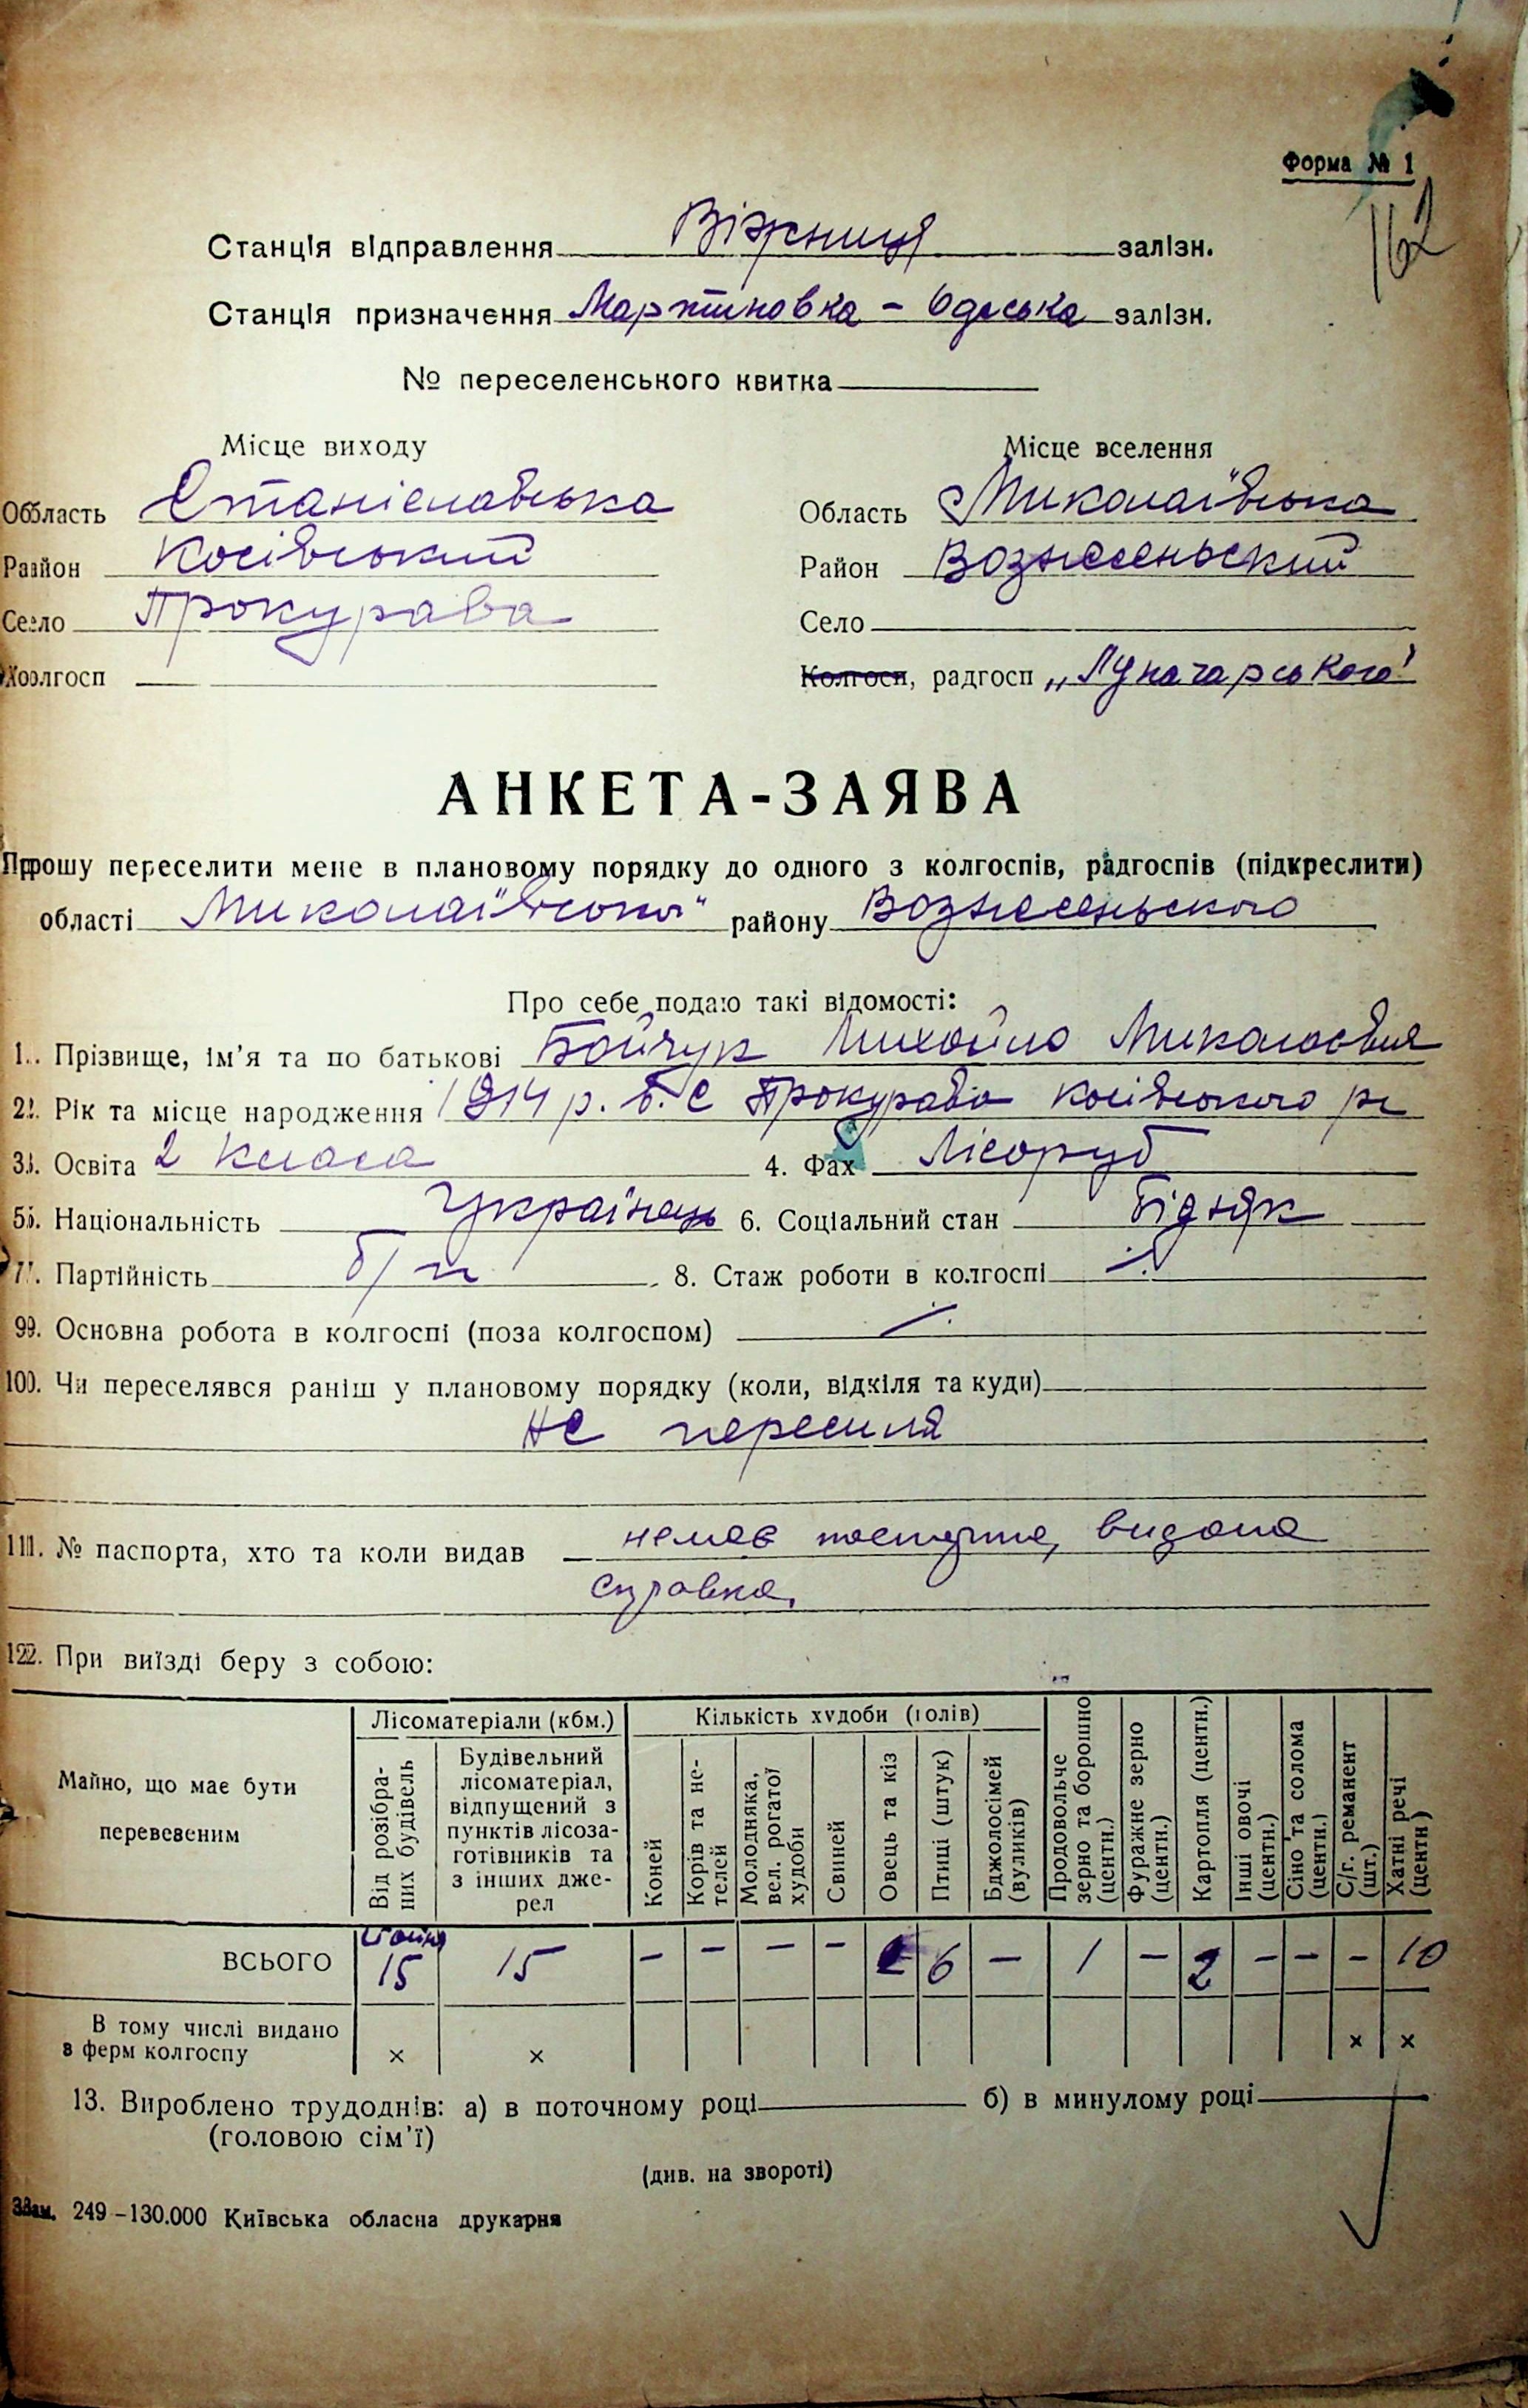 Форма № 1
162
Станція відправлення Віжниця залізн.
Станція призначення Мартиновка - Одеська залізн.
№ переселенського квитка
Місце виходу Місце вселення
Область Станіславська Область Миколаївська
Район Косівський Район Вознесенський
Село Прокурава Село
Колгосп Колгосп, радгосп „Луначарського"
АНКЕТА-ЗАЯВА
Прошу переселити мене в плановому порядку до одного з колгоспів, радгоспів (підкреслити)
області Миколаївської району Вознесенського
Про себе подаю такі відомості:
1. Прізвище, ім'я та по батькові Бойчук Михайло Миколаєвич
2. Рік та місце народження 1914 р. в. с Прокурава Косівського р-
3. Освіта 2 класа 4. Фах Лісоруб
5. Національність Українець 6. Соціальний стан Бідняк
7. Партійність б/п 8. Стаж роботи в колгоспі
9. Основна робота в колгоспі (поза колгоспом)
10. Чи переселявся раніш у плановому порядку (коли, відкіля та куди)
Не
11. № паспорта, хто та коли видав немає паспорта, видана
справка.
12. При виїзді беру з собою:
Майно, що має бути перевезеним
Лісоматеріали (кбм.)
Кількість худоби (голів)
Від розібраних будівель
Будівельний лісоматеріал, відпущений з пунктів лісозаготівників та з інших джерел
Коней
Корів та нетелей
Молодняка, вел. рогатої худоби
Свиней
Овець та кіз
Птиці (штук)
Бджолосімей (вуликів)
Продовольче зерно та борошно (центн.)
Фуражне зерно (центн.)
Картопля (центн.)
Інші овочі (центн.)
Сіно та солома (центн.)
С/г. реманент (шт.)
Хатні речі (центн)
ВСЬОГО 15 15 - - - - 6 - 1 - 2 - - - 10
В тому числі видано
з ферм колгоспу × × × ×
13. Вироблено трудоднів: а) в поточному році б) в минулому році
(головою сім'ї)
(див. на звороті)
Зам. 249-130.000 Київська обласна друкарня